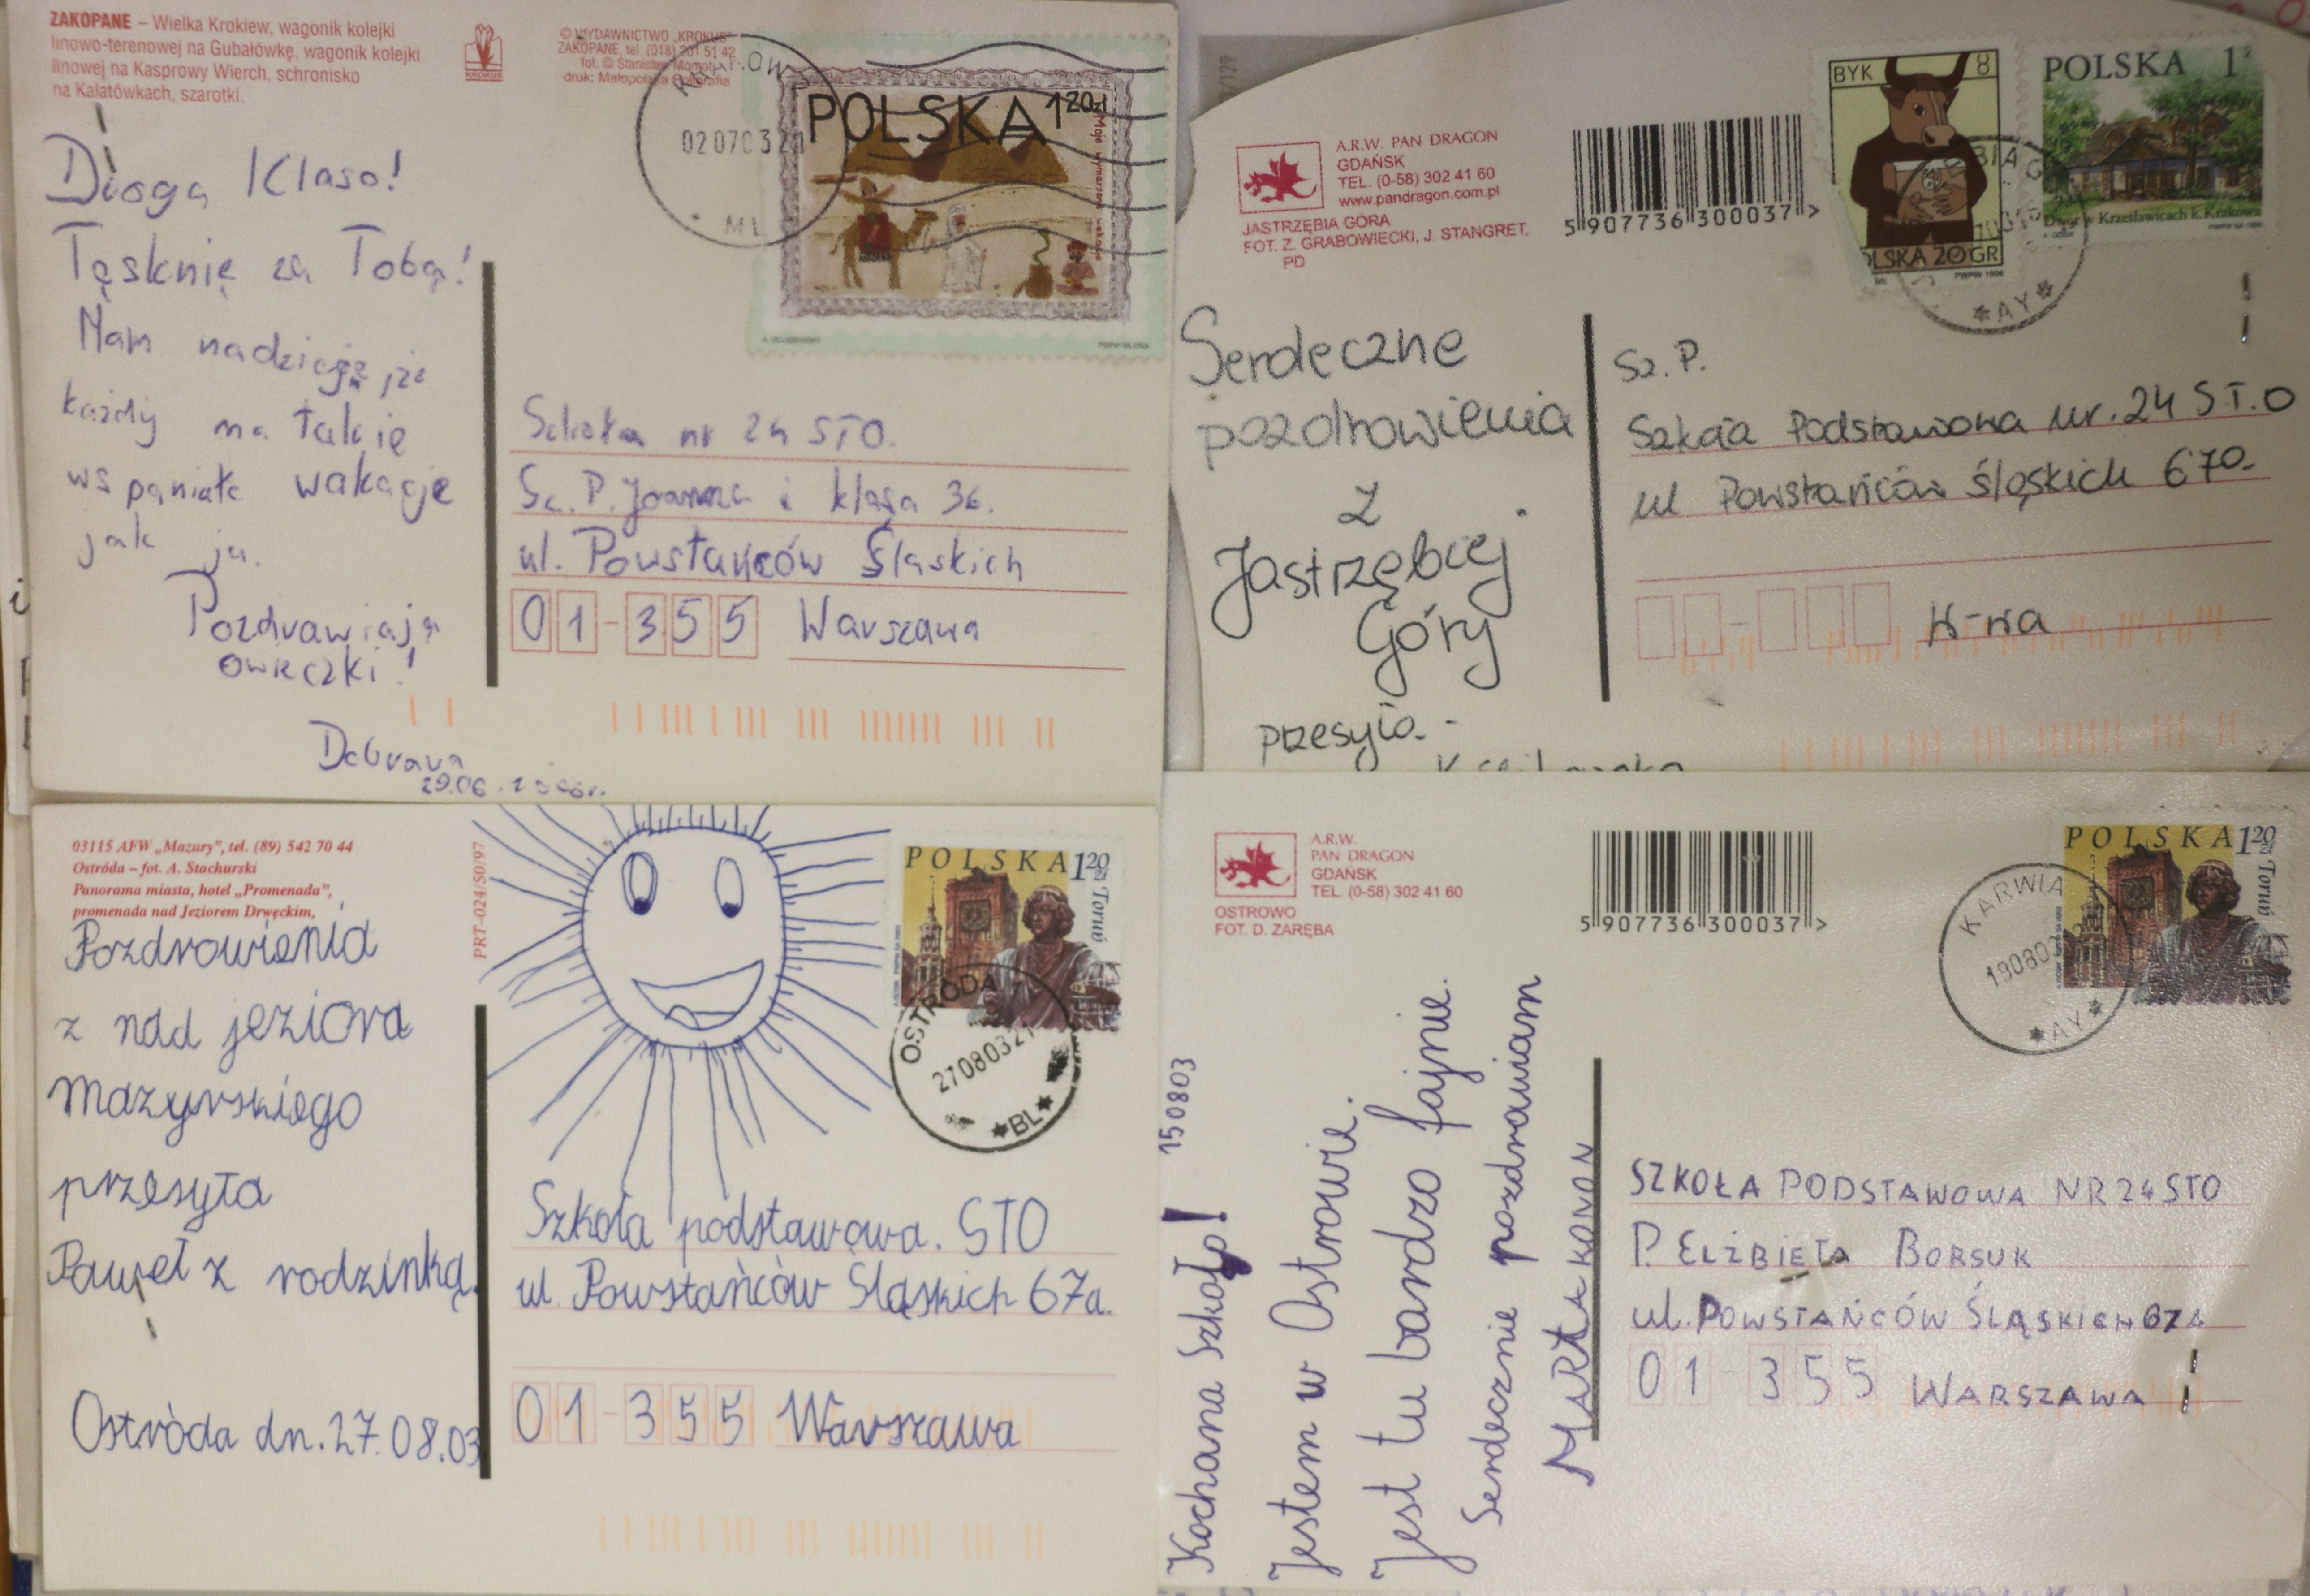 ZAKOPANE – Wielka Krokiew, wagonik kolejki
linowo-terenowej na Gubałówkę, wagonik kolejki
linowej na Kasprowy Wierch, schronisko
na Kalatówkach, szarotki.
KROKUS
© WYDAWNICTWO „KROKUS”
ZAKOPANE, tel. (018) 201 51 42
fot. © Stanisław
druk: Małopolska
020703
POLSKA 120zł
Droga Klaso!
Tęsknię za Tobą!
Mam nadzieję, że
każdy ma takie
wspaniałe wakacje
jak ja.
Pozdrawiają
owieczki!
29.06.
Szkoła nr 24 STO.
Sz. P. Joanna i klasa 3b.
ul. Powstańców Śląskich
01-355 Warszawa
A.R.W. PAN DRAGON
GDAŃSK
TEL. (0-58) 302 41 60
www.pandragon.com.pl
JASTRZĘBIA GÓRA
FOT. Z. GRABOWIECKI, J. STANGRET,
PD
5 907736 300037 >
BYK 8
POLSKA 20 GR
PWPW 1996
POLSKA 1
Dwór w Krzesławicach k. Krakowa
*AY*
Serdeczne
pozdrowienia
z
Jastrzębiej
Góry
przesyła -
Sz. P.
Szkoła Podstawowa nr. 24 S.T.O
ul Powstańców Śląskich 67a
W-wa
03115 AFW „Mazury”, tel. (89) 542 70 44
Ostróda – fot. A. Stachurski
Panorama miasta, hotel „Promenada”,
promenada nad Jeziorem Drwęckim,
PRT-024/S0/97
POLSKA 120zł
Toruń
OSTRÓDA
27080321
*BL*
Pozdrowienia
z nad jeziora
Mazurskiego
przesyła
Paweł z rodzinką.
Ostróda dn. 27.08.03
Szkoła podstawowa. STO
ul. Powstańców Śląskich 67a.
01-355 Warszawa
A.R.W.
PAN DRAGON
GDAŃSK
TEL. (0-58) 302 41 60
OSTROWO
FOT. D. ZARĘBA
5 907736 300037 >
POLSKA 120zł
Toruń
KARWIA
190803
*AY*
Kochana Szkoło! 150803
Jestem w Ostrowie.
Jest tu bardzo fajnie.
Serdecznie pozdrawiam
MARTA KONON
SZKOŁA PODSTAWOWA NR 24 STO
P. ELŻBIETA BORSUK
ul. POWSTAŃCÓW ŚLĄSKICH 67a
01-355 WARSZAWA